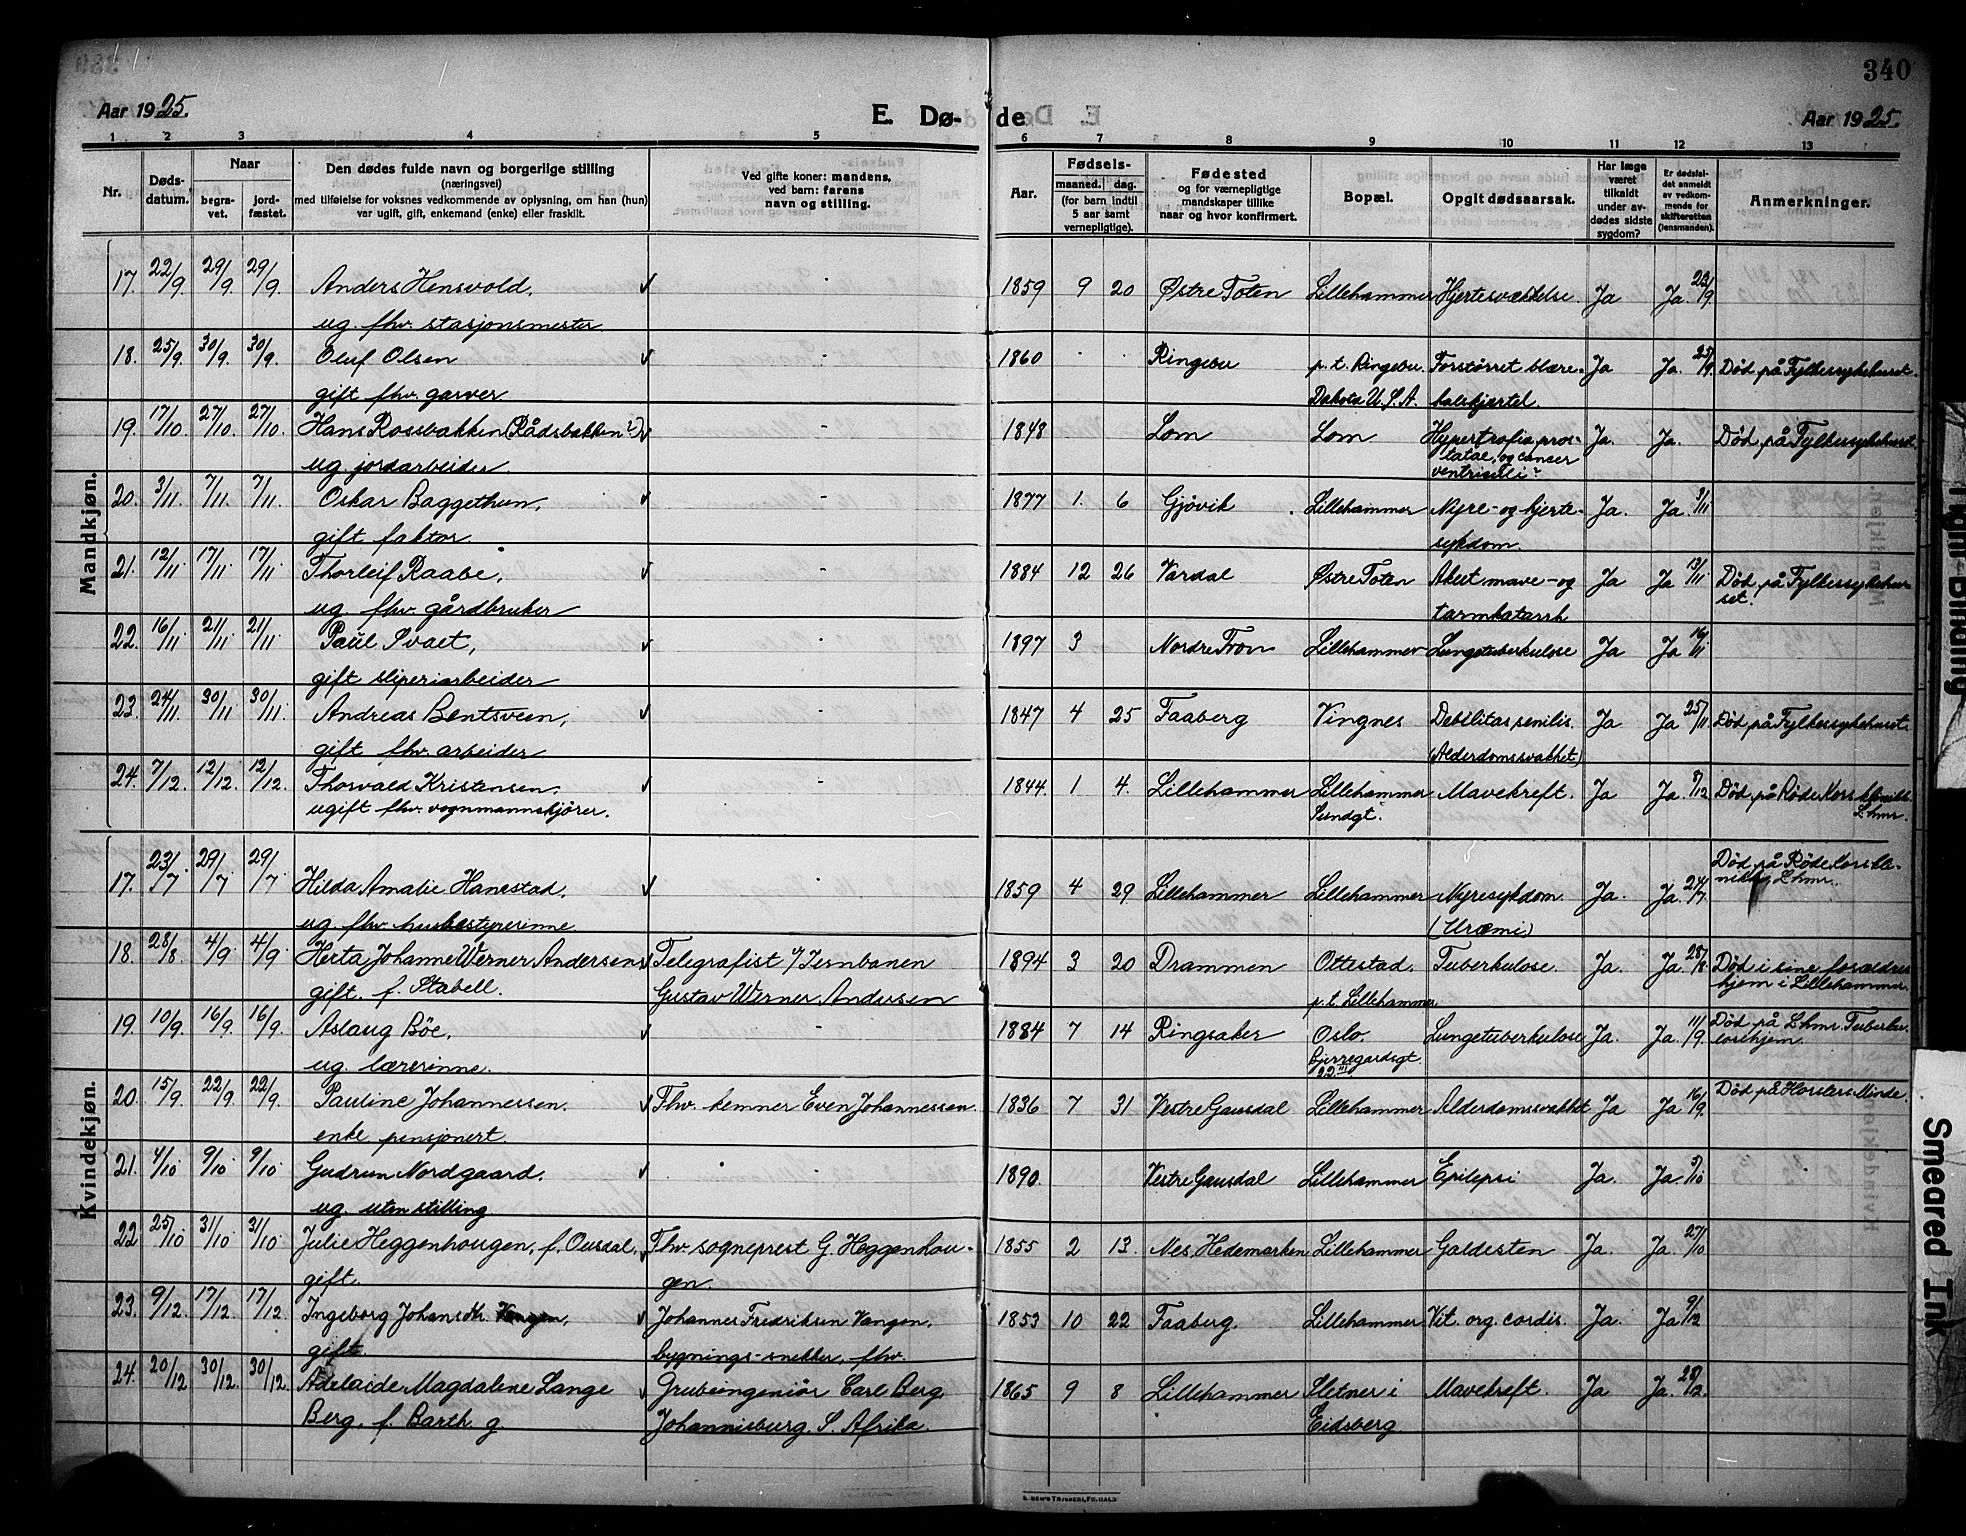 340
Aar 1925.
E. Dø-
de
Aar 1925.
1 2 3 4 5 6 7 8 9 10 11 12 13
Nr.
Døds-
datum.
Naar
begra-
vet.
jord-
fæstet.
Den dødes fulde navn og borgerlige stilling
(næringsvei)
med tilføielse for voksnes vedkommende av oplysning, om han (hun)
var ugift, gift, enkemand (enke) eller fraskilt.
Ved gifte koner: mandens,
ved barn: farens
navn og stilling.
Aar.
Fødsels-
maaned. dag.
(for barn indtil
5 aar samt
vernepligtige).
Fødested
og for værnepligtige
mandskaper tillike
naar og hvor konfirmert.
Bopæl.
Opgit dødsaarsak.
Har læge
været
tilkaldt
under av-
dødes sidste
sygdom?
Er dødsfal-
det anmeldt
av vedkom-
mende for
skifteretten
(lensmanden).
Anmerkninger.
Mandkjøn.
17. 22/9 29/9. 29/9. Anders Hensvold, - 1859 9 20 Østre Toten Lillehammer Hjertesvækkelse Ja Ja. 22/9
ug. fhv. stasjonsmester
18. 25/9. 30/9. 30/9. Oluf Olsen - 1860 Ringebu p.t. Ringebu Forstørret blære- Ja Ja. 25/9. Død på Fylkessykehuset.
gift fhv. garver Dakota U.S.A. halskjertel.
19. 17/10 27/10. 27/10. Hans Rosbakken (Rådsbakken?) - 1848 Lom Lom Hypertrofia pros- Ja. Ja. Død på Fylkessykehuset
ug. jordarbeider. tatae, og cancer
ventriculi?
20. 3/11 7/11. 7/11. Oskar Baggethun, - 1877 1. 6 Gjøvik Lillehammer Nyre- og hjerte- Ja. Ja 3/11
gift faktor. sykdom.
21. 12/11 17/11. 17/11. Thorleif Raabe, - 1884 12 26 Vardal Østre Toten Akut mave- og Ja Ja 13/11 Død på Fylkessykehu-
set.
ug. fhv. gårdbruker tarmkatarrh
22. 16/11 21/11 21/11. Paul Svaet, - 1897 3 Nordre Fron Lillehammer Lungetuberkulose Ja Ja 16/11
gift sliperiarbeider
23. 24/11. 30/11 30/11. Andreas Bentsveen, - 1847 4 25 Faaberg Vingnes Debilitas senilis Ja Ja 25/11 Død på Fylkessykehuset.
gift fhv. arbeider (Alderdomssvakhet)
24. 7/12. 12/12. 12/12. Thorvald Kristensen, - 1844. 1 4. Lillehammer Lillehammer Mavekreft. Ja Ja. 8/12 Død på Røde Kors klinikk
L.hmr.
ugift fhv. vognmannskjører. Sundgt.
Kvindekjøn.
17. 23/7 29/7 29/7 Hilda Amalie Hanestad. - 1859 4 29 Lillehammer Lillehammer Nyresykdom. Ja. Ja. 24/7. Død på Røde Kors kli-
nikk, L.hmr.
ug. fhv. husbestyrerinne (Uræmi)
18. 28/8 4/9. 4/9. Herta Johanne Werner Andersen Telegrafist v/Jernbanen 1894 3 20 Drammen Ottestad. Tuberkulose. Ja. Ja. 28/8 Død i sine foreldres
hjem i Lillehammer.
gift. f. Stabell. Gustav Werner Andersen p.t. Lillehammer
19. 10/9. 16/9. 16/9. Aslaug Böe, - 1884 7 14 Ringsaker Oslo, Lungetuberkulose Ja. Ja. 11/9. Død på L.hmr. Tuberku-
losehjem.
ug. lærerinne. Bjerregardsgt.
22 III
20. 15/9. 22/9. 22/9. Pauline Johannessen. Fhv. kemner Even Johannessen. 1836 7 31 Vestre Gausdal Lillehammer Alderdomssvakhet Ja Ja 16/9. Død på Horsters Minde.
enke pensjonert.
21. 4/10 9/10 9/10 Gudrun Nordgaard. - 1890. Vestre Gausdal Lillehammer Epilepsi Ja. Ja. 5/10
ug. uten stilling
22 25/10 31/10 31/10. Julie Heggenhougen, f. Ousdal, Fhv sogneprest G. Heggenhou- 1855 2 13. Nes, Hedemarken Lillehammer Galdesten Ja. Ja. 27/10
gift. gen.
23. 9/12. 17/12 17/12. Ingeborg Johansdtr. Vangen, Johannes Fredriksen Vangen. 1853 10 22 Faaberg. Lillehammer Vit. org. cordis. Ja Ja 9/12
gift. bygnings-snekker, fhv.
24. 20/12 30/12. 30/12. Adelaide Magdalene Lange Grubeingeniör Carl Berg 1865 9 8 Lillehammer Sletner i Mavekreft. Ja Ja. 28/12.
Berg, f. Barth. g Johannisburg, S. Afrika. Eidsberg.
Tight Binding
Smeared Ink